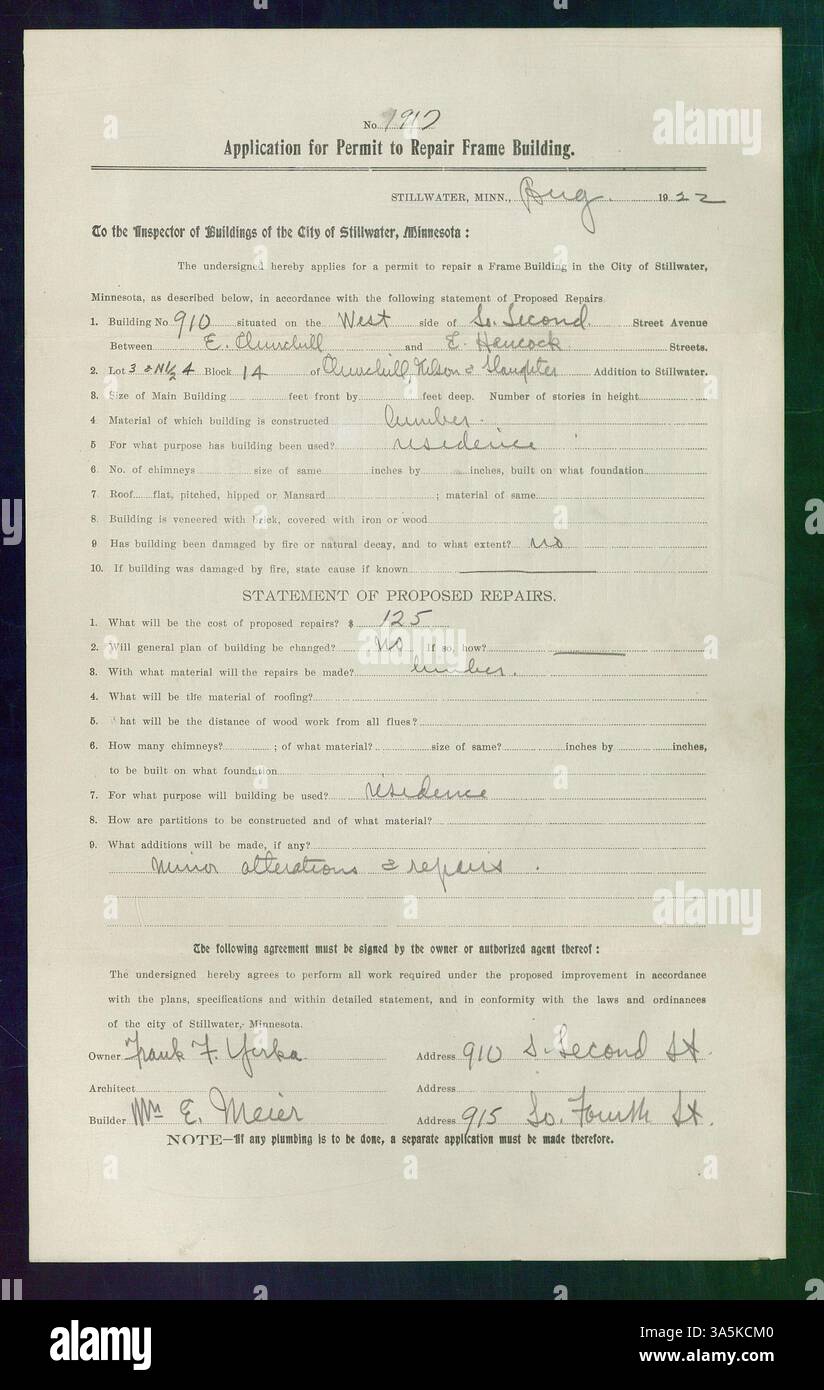 No. 1917
Application for Permit to Repair Frame Building.
STILLWATER, MINN., Aug. 1922
To the Inspector of Buildings of the City of Stillwater, Minnesota :
The undersigned hereby applies for a permit to repair a Frame Building in the City of Stillwater,
Minnesota, as described below, in accordance with the following statement of Proposed Repairs
1. Building No. 910 situated on the West side of So. Second Street Avenue
Between E. Churchill and E. Hancock Streets.
2. Lot 3 & N 1/2 4 Block 14 of Churchill, Nelson & Slaughter Addition to Stillwater.
3. Size of Main Building feet front by feet deep. Number of stories in height
4 Material of which building is constructed lumber
5 For what purpose has building been used? residence
6. No. of chimneys size of same inches by inches, built on what foundation
7. Roof flat, pitched, hipped or Mansard ; material of same
8. Building is veneered with brick, covered with iron or wood
9 Has building been damaged by fire or natural decay, and to what extent? no
10. If building was damaged by fire, state cause if known
STATEMENT OF PROPOSED REPAIRS.
1. What will be the cost of proposed repairs? $ 125
2. Will general plan of building be changed? No If so, how?
3. With what material will the repairs be made? lumber.
4. What will be the material of roofing?
5. hat will be the distance of wood work from all flues?
6. How many chimneys? ; of what material? size of same? inches by inches,
to be built on what foundation
7. For what purpose will building be used? residence
8. How are partitions to be constructed and of what material?
9. What additions will be made, if any?
Minor alterations & repairs.
The following agreement must be signed by the owner or authorized agent thereof :
The undersigned hereby agrees to perform all work required under the proposed improvement in accordance
with the plans, specifications and within detailed statement, and in conformity with the laws and ordinances
of the city of Stillwater, Minnesota.
Owner Frank F. Yorka Address 910 S. Second St.
Architect Address
Builder Wm E. Meier Address 915 So. Fourth St.
NOTE—If any plumbing is to be done, a separate application must be made therefore.
alamy
Image ID: 3A5KCM0
www.alamy.com